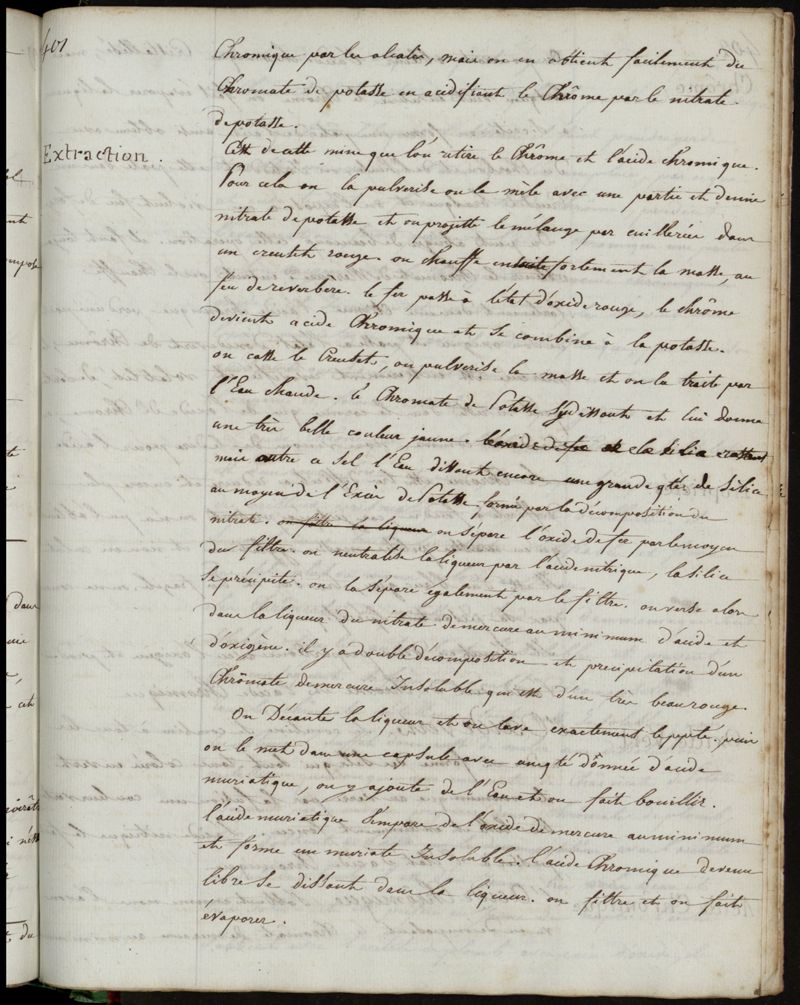 401
Chromique par les alcalis, mais on en obtient facilement du
Chromate de potasse en acidifiant le Chrôme par le nitrate
de potasse.
Extraction.
C'est de cette mine que l'on retire le Chrôme et l'acide chromique.
Pour cela on la pulverise on la mêle avec une partie et demie
nitrate de potasse et on projette le mélange par cuillerée dans
un creuset rouge on chauffe ensuite fortement la masse, au
feu de reverbère. le fer passe à l'état d'oxide rouge, le chrôme
devient acide Chromique et se combine à la potasse.
on casse le Creuset, on pulverise la masse et on la traite par
l'Eau chaude. le Chromate de Potasse s'y dissout et lui donne
une très belle couleur jaune. l'oxide de fer et la silice restent
mais outre ce sel l'Eau dissout encore une grande qté de Silice
au moyen de l'Excès de Potasse, formé par la décomposition du
nitrate. on filtre la liqueur on sépare l'oxide de fer par le moyen
du filtre. on neutralise la liqueur par l'acide nitrique, la silice
se précipite. on la sépare également par le filtre. on verse alors
dans la liqueur du nitrate de mercure au minimum d'acide et
d'oxigène. il y a double décomposition et precipitation d'un
Chrômate de mercure Insoluble qui est d'un très beau rouge.
On Décante la liqueur et on lave exactement le ppté. puis
on le met dans une capsule avec une qté dônnée d'acide
muriatique, on y ajoute de l'Eau et on fait bouillir.
l'acide muriatique s'empare de l'oxide de mercure au minimum
et forme un muriate Insoluble. l'acide Chromique devenu
libre se dissout dans la liqueur. on filtre et on fait
évaporer.